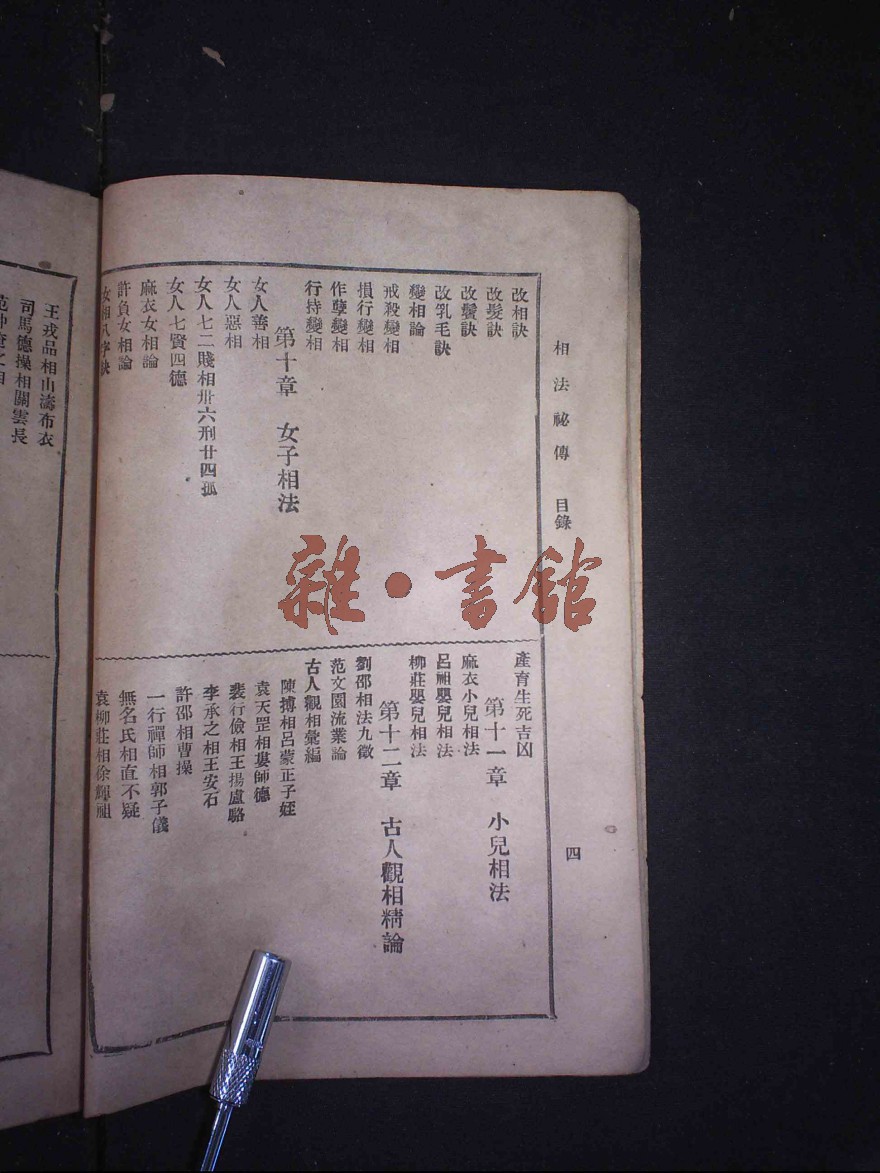 相法祕傳 目錄
四
改相訣
改髮訣
改鬢訣
改乳毛訣
變相論
戒殺變相
損行變相
作孽變相
行持變相
第十章 女子相法
女人善相
女人惡相
女人七二賤相卅六刑廿四孤
女人七賢四德
麻衣女相論
許負女相論
女相八字訣
產育生死吉凶
第十一章 小兒相法
麻衣小兒相法
呂祖嬰兒相法
柳莊嬰兒相法
第十二章 古人觀相精論
劉邵相法九徵
范文園流業論
古人觀相彙編
陳摶相呂蒙正子姪
袁天罡相婁師德
裴行儉相王揚盧駱
李承之相王安石
許邵相曹操
一行禪師相郭子儀
無名氏相直不疑
袁柳莊相徐輝祖
王戎品相山濤布衣
司馬德操相關雲長
雜·書館